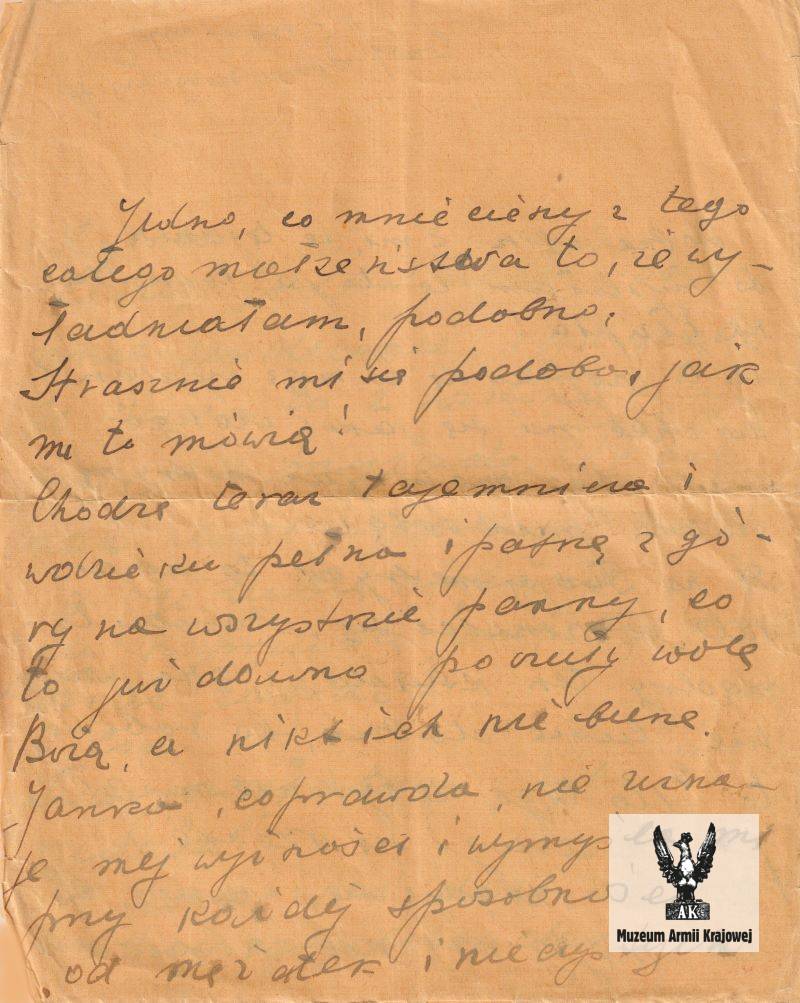 Jedno, co mnie cieszy z tego
całego małżeństwa to, że wy-
ładniałam, podobno.
Strasznie mi się podoba, jak
mi to mówią!
Chodzę teraz tajemnicza i
wdzięku pełna i patrzę z gó-
ry na wszystkie panny, co
to już dawno poczuły wolę
Bożą, a nikt ich nie bierze.
Janka, co prawda, nie uzna-
je mej wyższości i wymyśla mi
przy każdej sposobności
od mężatek i
AK
Muzeum Armii Krajowej